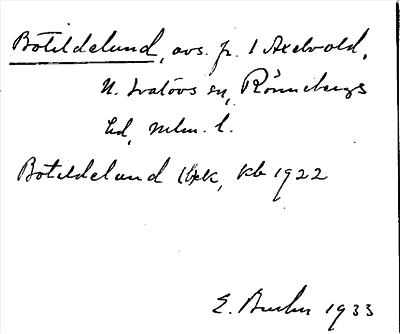 Botildelund, avs. fr. 1 Axelvold,
N. Svalövs sn, Rönnebergs
hd, mlm. l.
Botildelund kb 1922
E. 1933